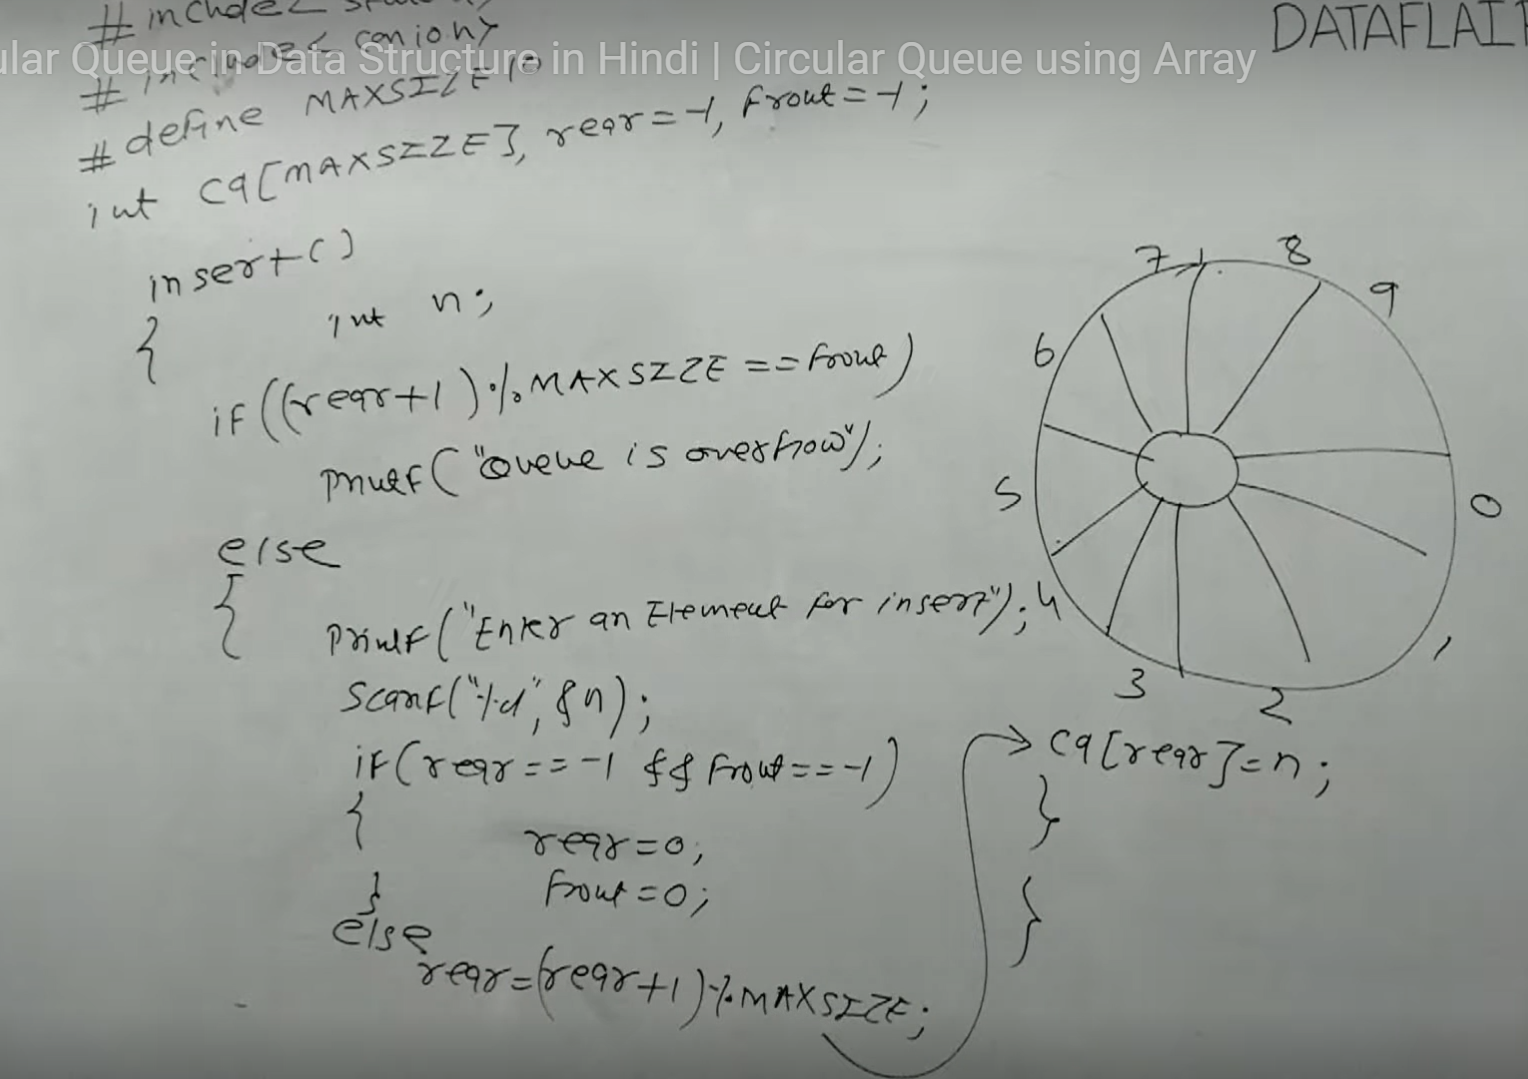 DATAFLAI
ular Queue in Data Structure in Hindi | Circular Queue using Array
# include<
# include< conioh>
# define MAXSIZE 10
int cq[MAXSIZE], rear=-1, front=-1;
insert()
{ int n;
if((rear+1)%MAXSIZE ==front)
printf("Queue is overfrow");
else
{ printf("Enter an Element for insert");
scanf("%d",&n);
if(rear==-1 && front==-1)
{ rear=0;
front=0;
}
else
rear=(rear+1)%MAXSIZE;
cq[rear]=n;
}
}
7 8 9
6
5 0
4 1
3 2